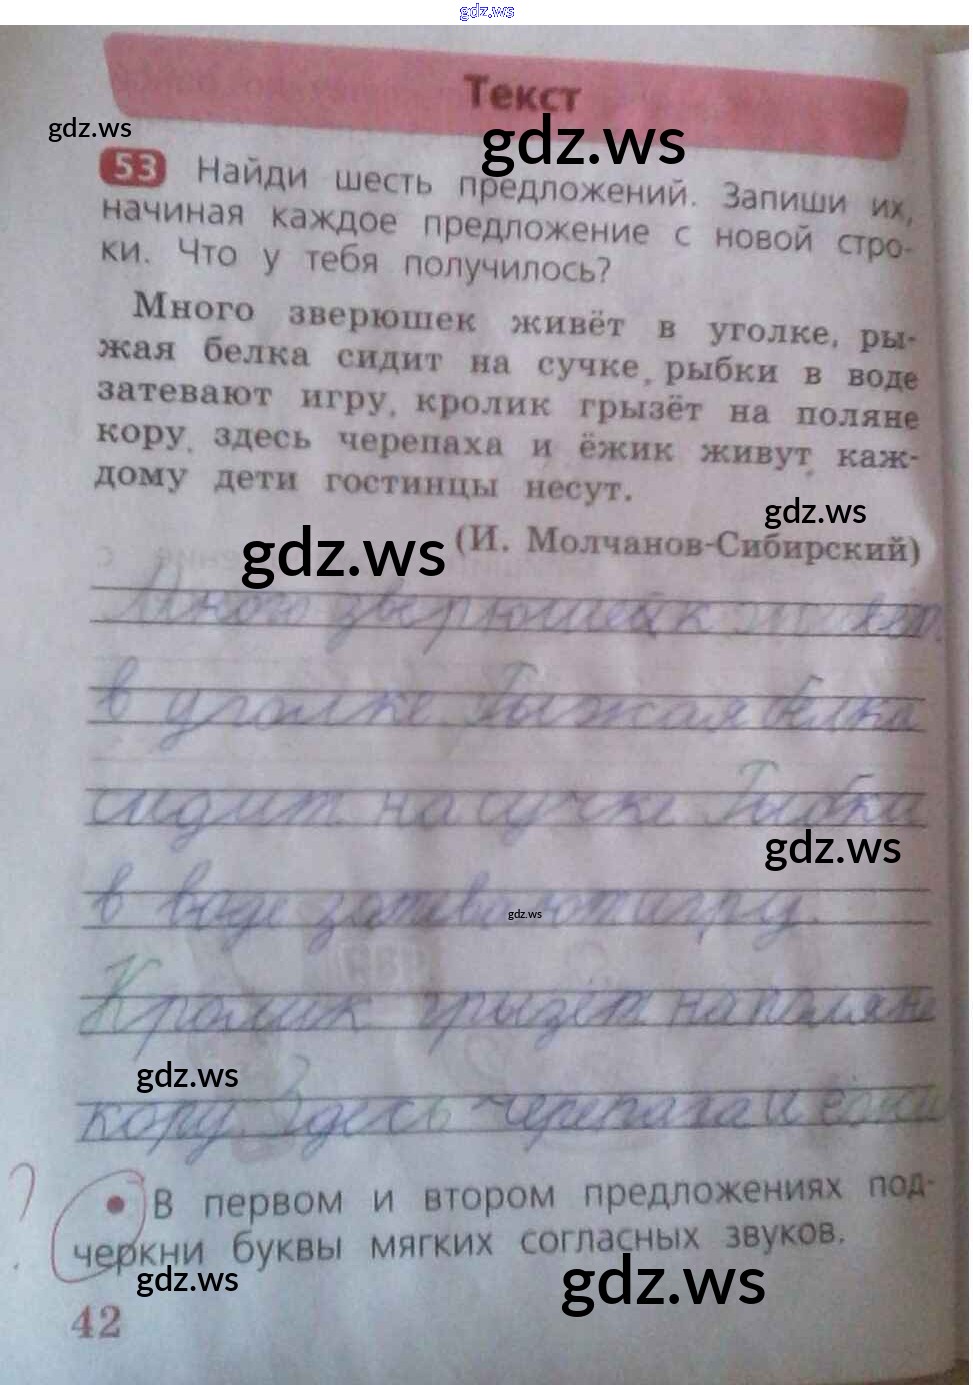 gdz.ws
Текст
gdz.ws
gdz.ws
53 Найди шесть предложений. Запиши их,
начиная каждое предложение с новой стро-
ки. Что у тебя получилось?
Много зверюшек живёт в уголке, ры-
жая белка сидит на сучке, рыбки в воде
затевают игру, кролик грызёт на поляне
кору, здесь черепаха и ёжик живут, каж-
дому дети гостинцы несут.
gdz.ws
(И. Молчанов-Сибирский)
gdz.ws
Много зверюшек живёт
в уголке. Рыжая белка
сидит на сучке. Рыбки
gdz.ws
в воде затевают игру.
gdz.ws
Кролик грызёт на поляне
gdz.ws
кору. Здесь черепаха и ёжик
? • В первом и втором предложениях под-
черкни буквы мягких согласных звуков.
gdz.ws
gdz.ws
42